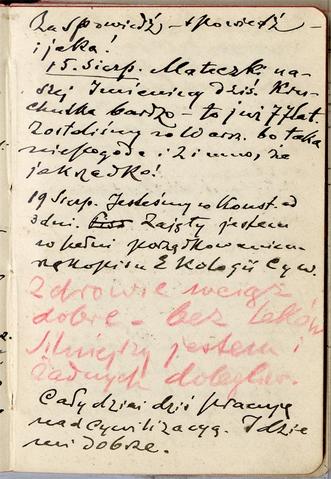 Za spowiedź – spowiedź –
i jaka!
15. Sierp. Mateczki na-
szej Imieniny dziś. Kru-
chutka bardzo – to już 77 lat.
Zostaliśmy w Warsz. bo taka
niepogoda i zimno, że
jak rzadko!
19 Sierp. Jesteśmy w Konst. od
3 dni. Zajęty jestem
w pełni porządkowaniem
rękopisu Ekologii Cyw.
Zdrowie wciąż
dobre – bez leków
jestem i
żadnych dolegliw.
Cały dzień dziś pracuję
nad cywilizacyą. Idzie
mi dobrze.